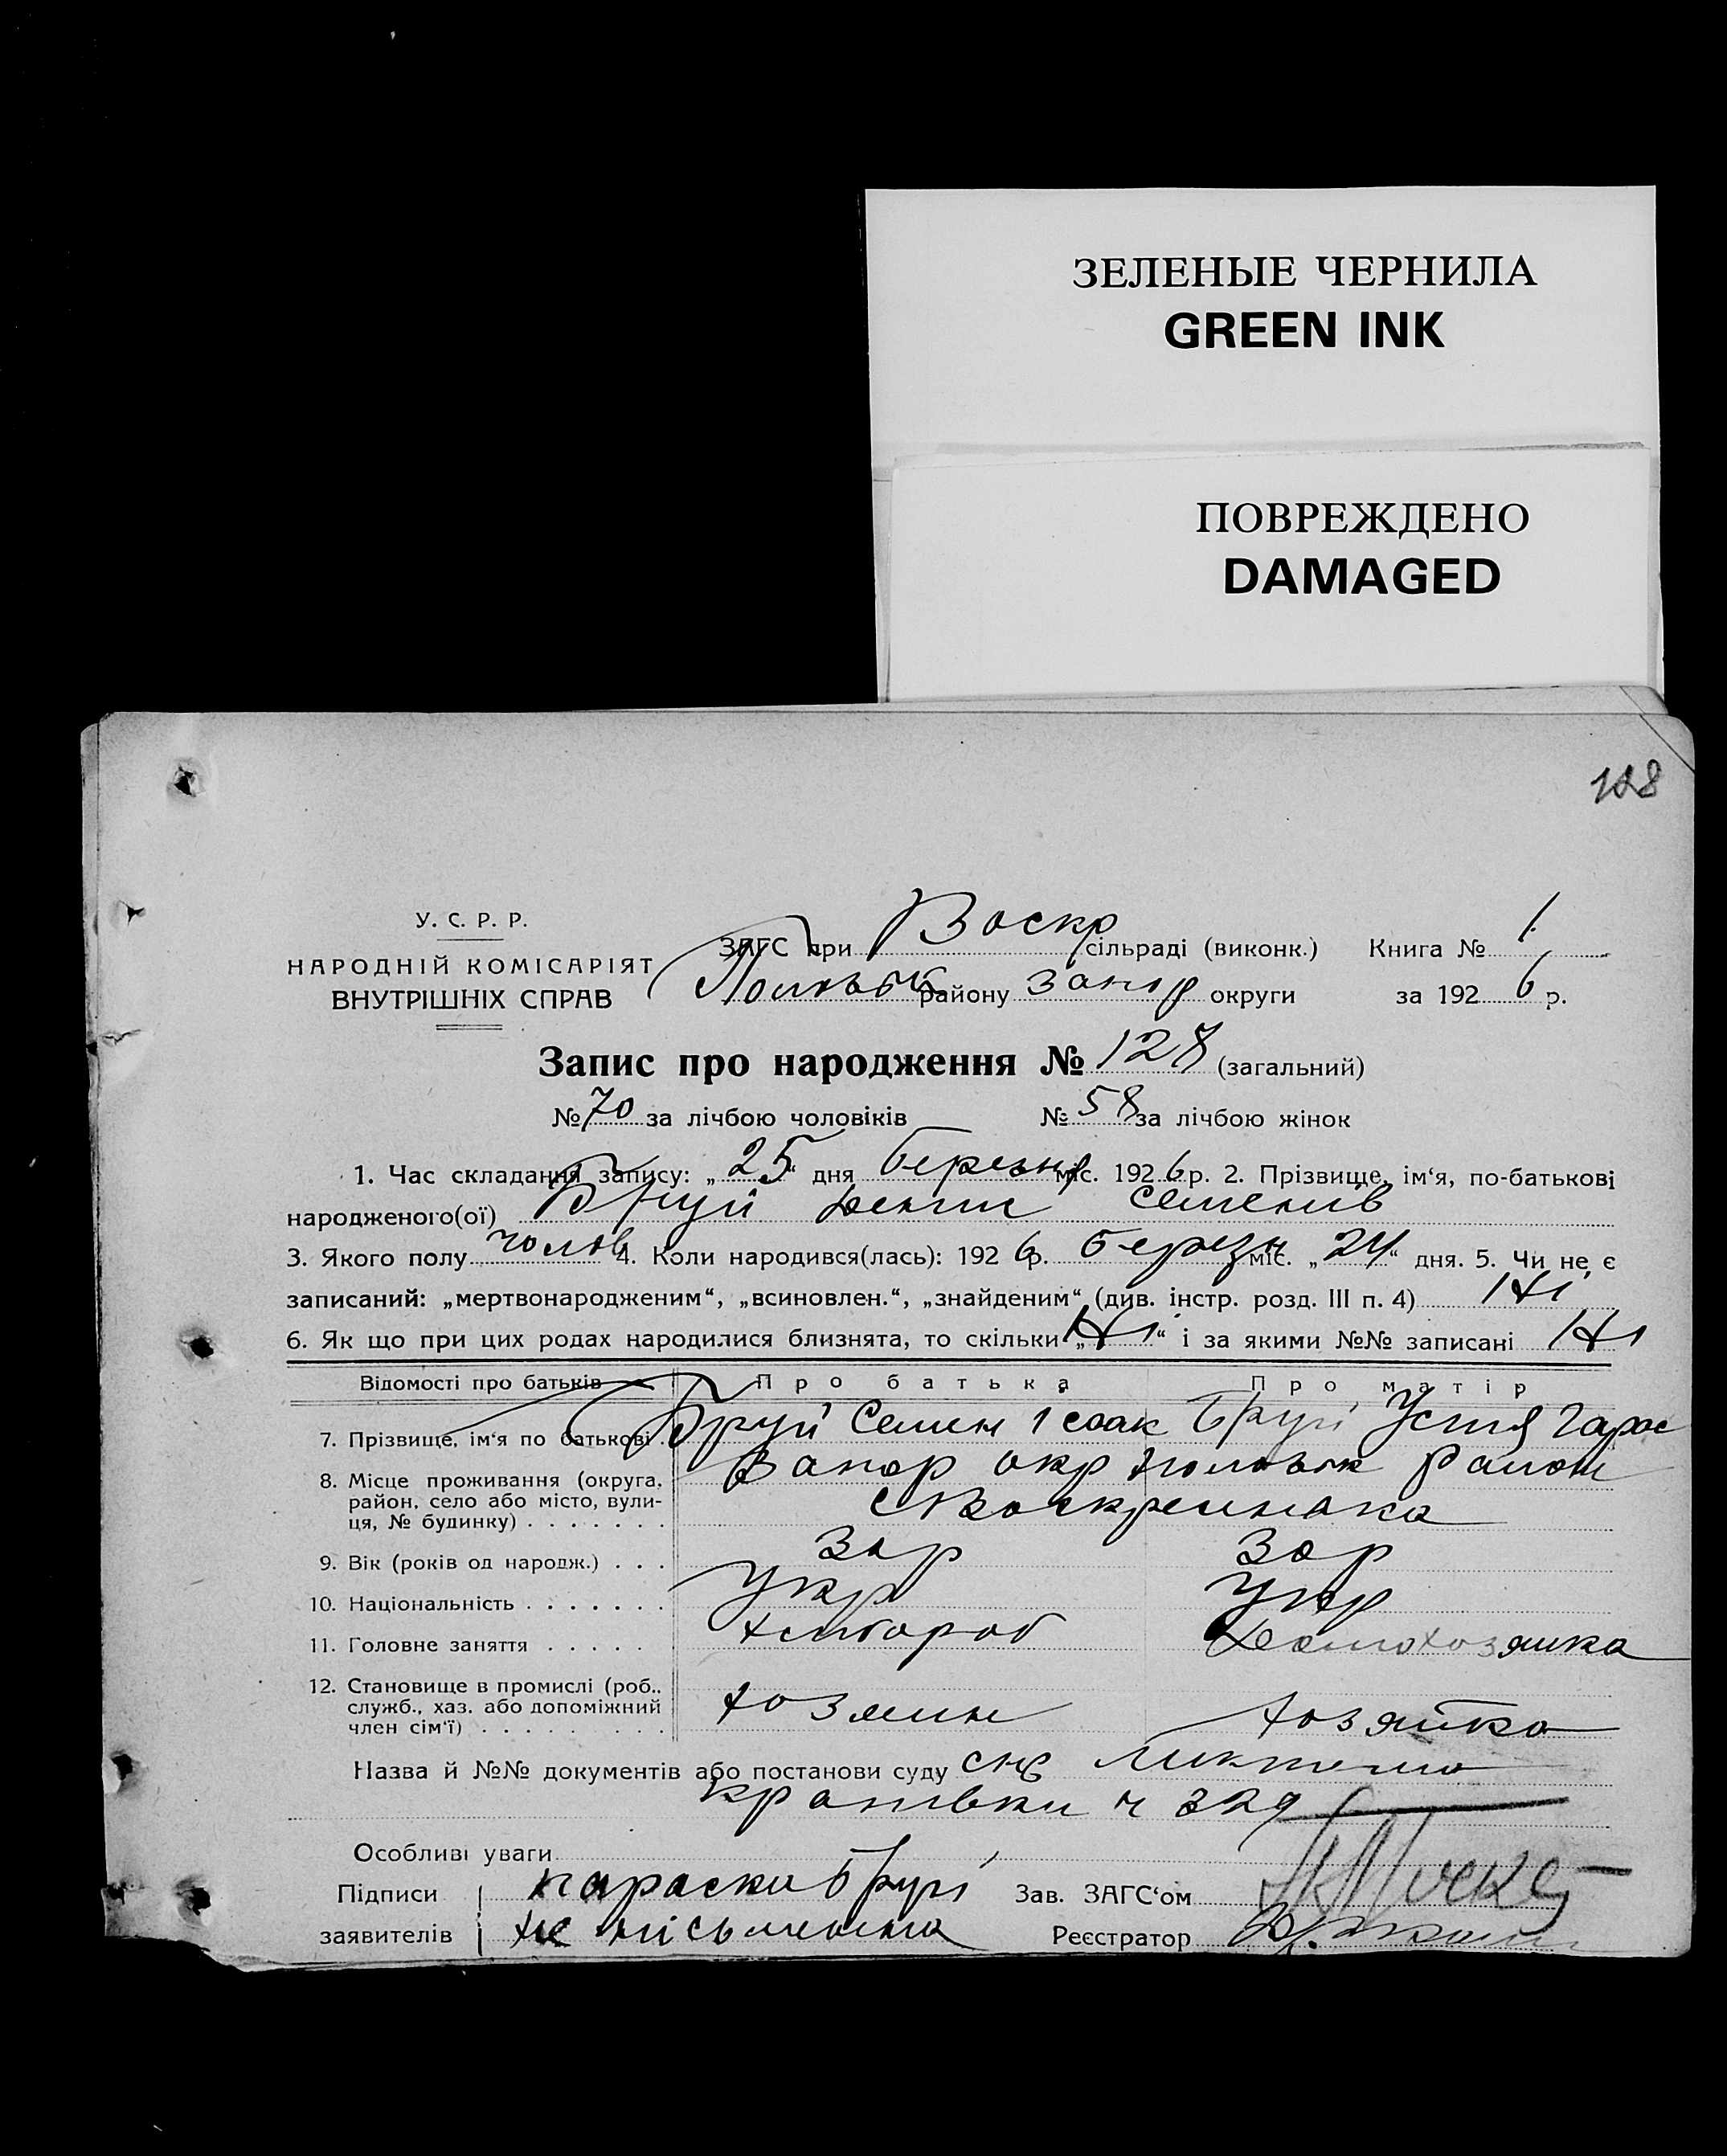 ЗЕЛЕНЫЕ ЧЕРНИЛА
GREEN INK
ПОВРЕЖДЕНО
DAMAGED
128
У. С. Р. Р.
НАРОДНІЙ КОМІСАРІЯТ
ВНУТРІШНІХ СПРАВ
ЗАГС при Воскр сільраді (виконк.) Книга № 1
району Запор округи за 1926 р.
Запис про народження № 128 (загальний)
№ 70 за лічбою чоловіків № 58 за лічбою жінок
1. Час складання запису: „25“ дня березня міс. 1926 р. 2. Прізвище, ім‘я, по-батькові
народженого(ої) Бруй Семенів
3. Якого полу чолов 4. Коли народився(лась): 1926 р. березн міс. „24“ дня. 5. Чи не є
записаний: „мертвонародженим“, „всиновлен.“, „знайденим“ (див. інстр. розд. III п. 4) Ні
6. Як що при цих родах народилися близнята, то скільки „Ні“ і за якими №№ записані Ні
Відомості про батьків Про батька Про матір
7. Прізвище, ім‘я по батькові Бруй Семен Ісаак Бруй Устя Тарас
8. Місце проживання (округа, район, село або місто, вулиця, № будинку) Запор окр район
9. Вік (років од народж.) 30 р 30 р
10. Національність Укр Укр
11. Головне заняття хлібороб домохозяйка
12. Становище в промислі (роб., служб., хаз. або допоміжний член сім‘ї) хозяин хозяйка
Назва й №№ документів або постанови суду
329
Особливі уваги
Підписи Параски Бруй Зав. ЗАГС‘ом
заявителів не письменна Реєстратор